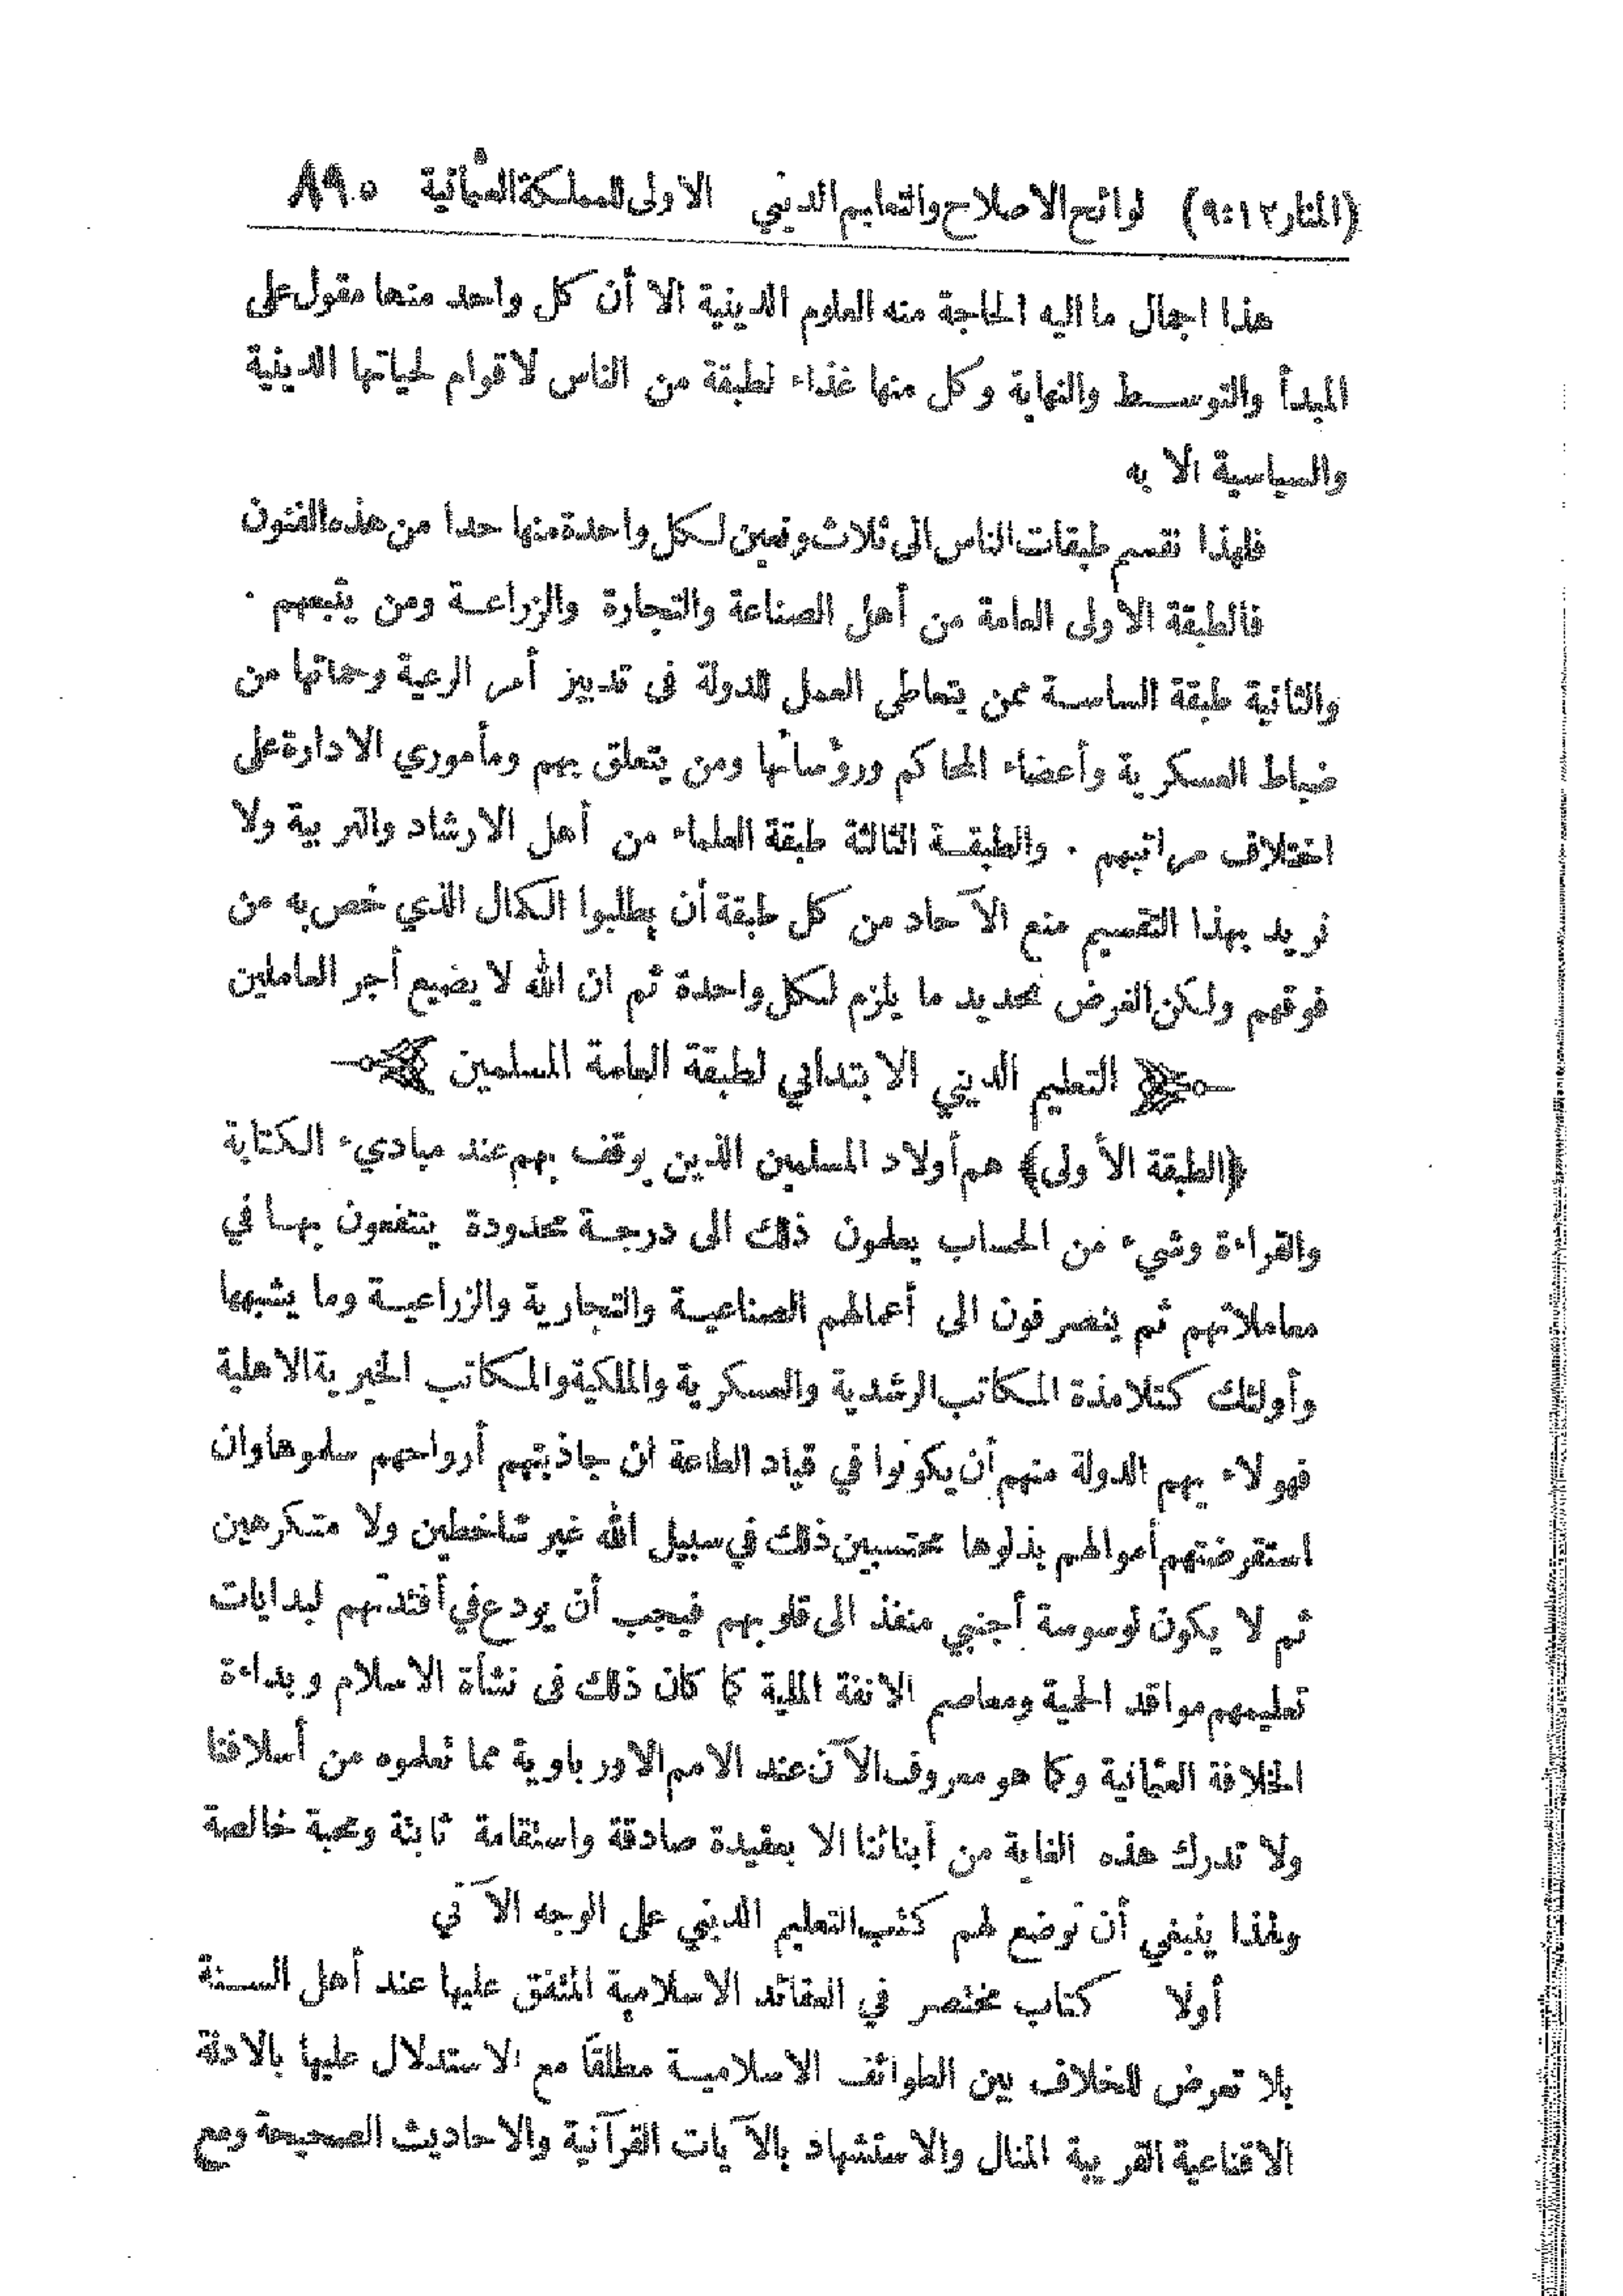 (المنار ١٢:٩) لوائح الاصلاح والتعليم الديني الاولى للمملكة العثمانية ٨٩٠
هذا اجمال ما اليه الحاجة منه العلوم الدينية الا أن كل واحد منها مقول على
المبدأ والتوسط والنهاية وكل منها غذاء لطبقة من الناس لا قوام لحياتها الدينية
والسياسية الا به
فلهذا نقسم طبقات الناس الى ثلاث ونعين لكل واحدة منها حدا من هذه الفنون
فالطبقة الاولى العامة من أهل الصناعة والتجارة والزراعة ومن يتبعهم .
والثانية طبقة الساسة ممن يتعاطى العمل للدولة في تدبيز أمر الرعية وحماتها من
ضباط العسكرية وأعضاء المحاكم ورؤسائها ومن يتعلق بهم ومأموري الادارة على
اختلاف مراتبهم . والطبقة الثالثة طبقة العلماء من أهل الارشاد والتربية ولا
نريد بهذا التقسيم منع الآحاد من كل طبقة أن يطلبوا الكمال الذي خص به من
فوقهم ولكن الغرض تحديد ما يلزم لكل واحدة ثم ان الله لا يضيع أجر العاملين
التعليم الديني الابتدائي لطبقة العامة المسلمين
﴿الطبقة الأولى﴾ هم أولاد المسلمين الذين يوقف بهم عند مبادىء الكتابة
والقراءة وشيء من الحساب يعلمون ذلك الى درجة محدودة ينتفعون بها في
معاملاتهم ثم ينصرفون الى أعمالهم الصناعية والتجارية والزراعية وما يشبهها
وأولئك كتلامذة المكاتب الرشدية والعسكرية والملكية والمكاتب الخيرية الاهلية
فهولاء يهم الدولة منهم أن يكونوا في قياد الطاعة ان جاذبتهم أرواحهم سلموها وان
استقرضتهم أموالهم بذلوها محتسبين ذلك في سبيل الله غير ساخطين ولا متكرهين
ثم لا يكون لوسوسة أجنبي منفذ الى قلوبهم فيجب أن يودع في أفئدتهم لبدايات
تعليمهم مواقد الحمية ومعاصم الانفة الملية كما كان ذلك في نشأة الاسلام وبداءة
الخلافة العثمانية وكما هو معروف الآن عند الامم الاورباوية مما تعلموه من أسلافنا
ولا تدرك هذه الغاية من أبنائنا الا بعقيدة صادقة واستقامة ثابتة ومحبة خالصة
ولهذا ينبغي أن توضع لهم كتب التعليم الديني على الوجه الآتي
أولا كتاب مختصر في العقائد الاسلامية المتفق عليها عند أهل السنة
بلا تعرض للخلاف بين الطوائف الاسلامية مطلقاً مع الاستدلال عليها بالادلة
الاقناعية القريبة المنال والاستشهاد بالآيات القرآنية والاحاديث الصحيحة ومع